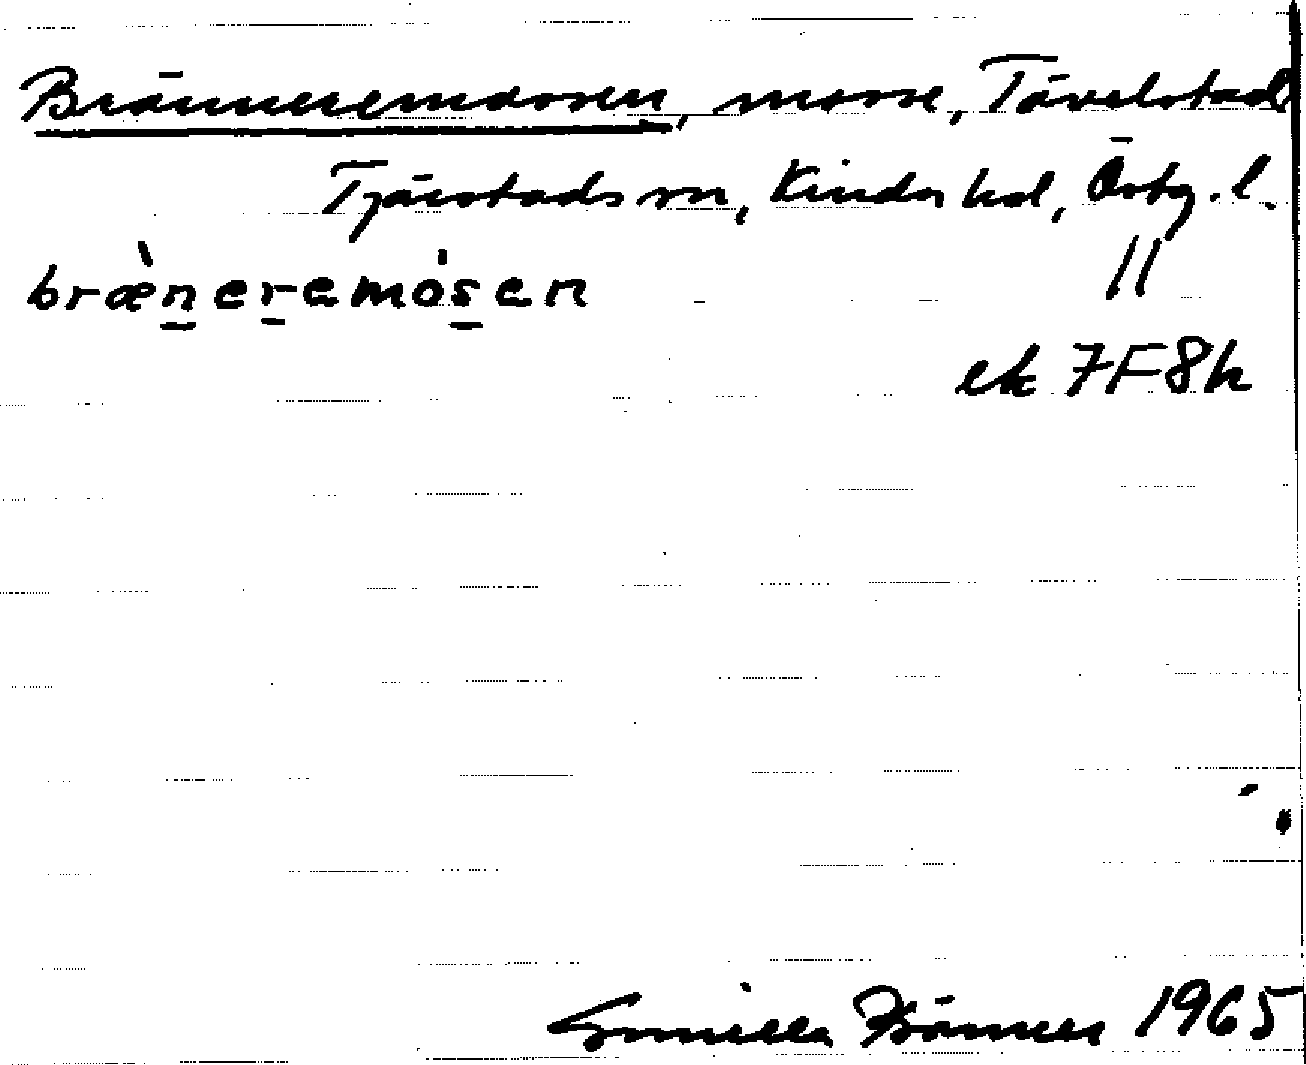 Bränneremossen, mosse, Tävelstad
Tjärstads sn, Kinda hd, Östg. l.
bræ̀neremósen
11
ek 7F8h
Gunilla Brännes 1965